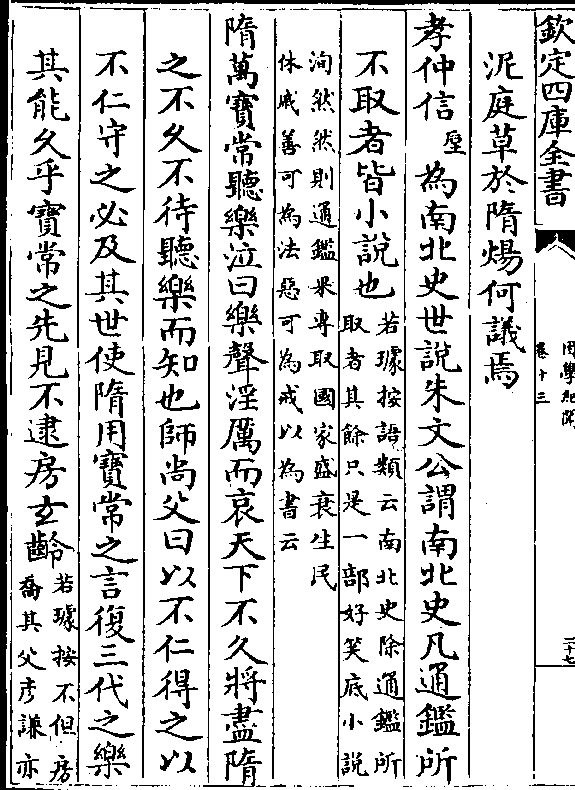 欽定四庫全書
困學紀聞
卷十三
二十七
泥庭草於隋煬何議焉
孝仲信壁為南北史世說朱文公謂南北史凡通鑑所
不取者皆小說也若璩按語類云南北史除通鑑所
取者其餘只是一部好笑底小說
洵然然則通鑑果專取國家盛衰生民
休戚善可為法惡可為戒以為書云
隋萬寶常聽樂泣曰樂聲淫厲而哀天下不久將盡隋
之不久不待聽樂而知也師尚父曰以不仁得之以
不仁守之必及其世使隋用寶常之言復三代之樂
其能久乎寶常之先見不逮房玄齡若璩按不但房
喬其父彦謙亦